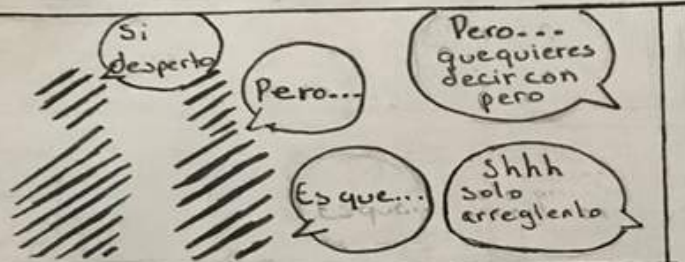 Si
desperto
Pero...
Pero...
que quieres
decir con
pero
Es que...
Shhh
solo
arreglento